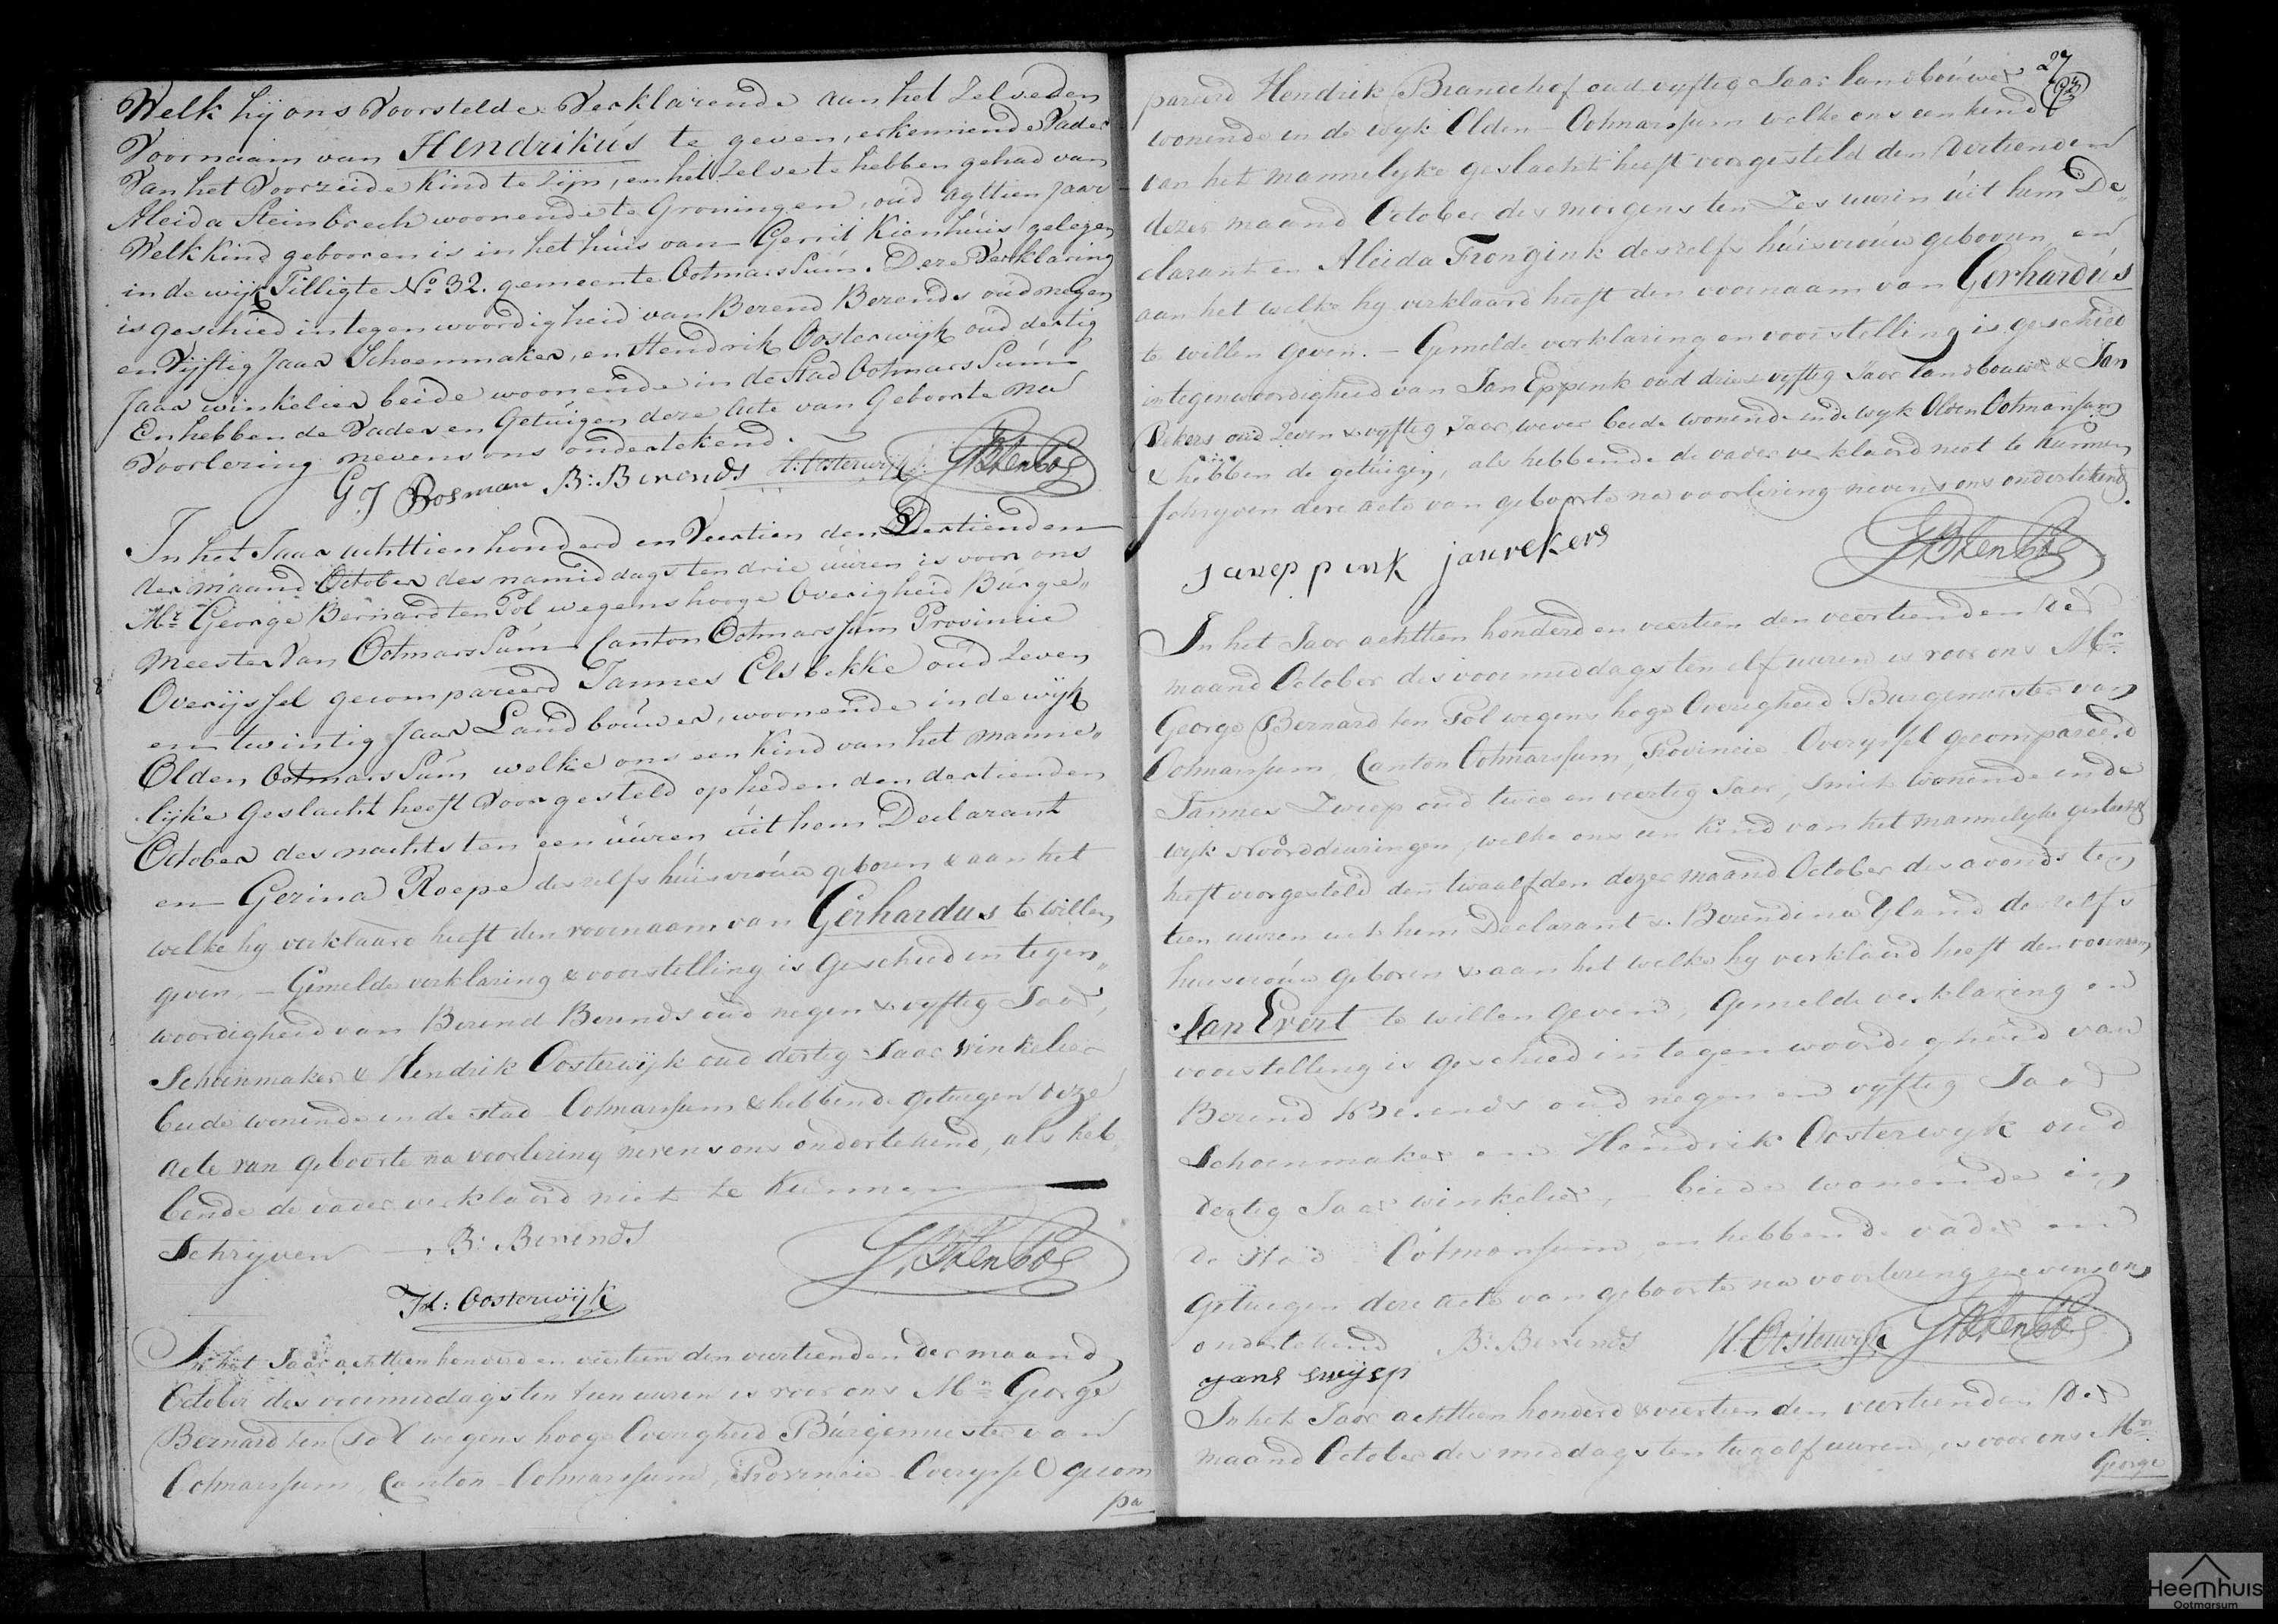 Welk hy ons Voorstelde Verklarende aan het Zelve den
Voornaam van Hendrikus te geven, erkennende Vader
Van het Voorzeide Kind te Zijn, en het Zelve te hebben gehad van
Aleida Steinbrech woonende te Groningen, oud agttien Jaar
Welk Kind gebooren is in het huis van Gerrit Kienhuis gelegen
in de wijk Tilligte No 32. gemeente OotmarsSum. Deze Verklaring
is geschied in tegenwoordigheid van Berend Berends oud negen
en Vijftig Jaar Schoenmaker, en Hendrik Oosterwijk oud dertig
Jaar winkelier beide woonende in de Stad OotmarsSum
En hebben de Vader en Getuigen deze Acte van Geboorte na
Voorlezing nevens ons ondertekend.
G J Bosman B: Berends H: Oosterwijk GBtenPol
In het Jaar achttien honderd en Veertien den Dertienden
der maand October des namiddags ten drie uuren is voor ons
Mr George Bernard ten Pol wegens hooge Overigheid Burge„
meester Van OotmarsSum Canton Ootmarssum Provincie
Overijssel gecompareerd Jannes Elsbekke oud Zeven
en twintig Jaar Landbouwer, woonende in de wijk
Olden OotmarsSum welke ons een Kind van het manne„
lijke Geslacht heeft Voorgesteld op heden den dertienden
October des nachts ten een uuren uit hem Declarant
en Gerina Roepe deszelfs huisvrouw geboren & aan het
welke hy verklaard heeft den voornaam van Gerhardus te willen
geven. – Gemelde verklaring & voorstelling is Geschied in tegen„
woordigheid van Berend Berends oud negen & vyftig Jaar,
Schoenmaker & Hendrik Oosterwijk oud dertig Jaar Winkelier
beide wonende in de stad Ootmarssum & hebbende getuigen deze
acte van geboorte na voorlezing nevens ons ondertekend, als heb„
bende de vader verklaard niet te Kunnen
Schryven B: Berends GBtenPol
Hd: Oosterwijk
In het Jaar achttien honderd en veertien den veertienden der maand
October des voormiddags ten tien uuren is voor ons Mr George
Bernard ten Pol wegens hooge Overigheid Burgemeester van
Ootmarssum, Canton Ootmarssum, Provincie Overyssel gecom
pa
27
pareerd Hendrik Brandehof oud vyftig Jaar landbouwer
wonende in de wyk Olden-Ootmarssum welke ons een kind
van het mannelyke geslacht heeft voorgesteld den dertienden
dezer maand October des morgens ten Zes uuren uit hem De„
clarant en Aleida Frongink deszelfs huisvrouw gebooren en
aan het welke hy verklaard heeft den voornaam van Gerhardus
te willen geven. – Gemelde verklaring en voorstelling is geschied
in tegenwoordigheid van Jan Eppink oud drie & vyftig Jaar landbouwer & Jan
Rekers oud Zeven & vyftig Jaar, wever beide wonende in de wyk Olden Ootmarssum
& hebben de getuigen, als hebbende de vader verklaard niet te Kunnen
schryven deze acte van geboorte na voorlezing nevens ons ondertekend.
jan eppink jan rekers GBtenPol
In het Jaar achttien honderd en veertien den veertienden der
maand October des voormiddags ten elf uuren is voor ons Mr
George Bernard ten Pol wegens hoge Overigheid Burgemeester van
Ootmarssum, Canton Ootmarssum, Provincie Overyssel gecompareerd
Jannes Zweep oud twee en veertig Jaar, Smit wonende in de
wyk Noorddeuringen, welke ons een kind van het mannelyke geslacht
heeft voorgesteld den twaalfden dezer maand October des avonds ten
tien uuren uit hem Declarant & Berendina Yland deszelfs
huisvrouw geboren & aan het welke hy verklaard heeft den voornaam
Jan Evert te willen geven, Gemelde verklaring en
voorstelling is geschied in tegenwoordigheid van
Berend Berends oud negen en vyftig Jaar
Schoenmaker en Hendrik Oosterwyk oud
dertig Jaar winkelier, beide wonende in
de Stad Ootmarssum en hebbende vader en
Getuigen deze acte van geboorte na voorlezing nevens ons
ondertekend B: Berends H. Oosterwijk GBtenPol
yans swyep
In het Jaar achttien honderd & veertien den veertienden der
maand October des middags ten twaalf uuren, is voor ons Mr
George
Heemhuis
Ootmarsum